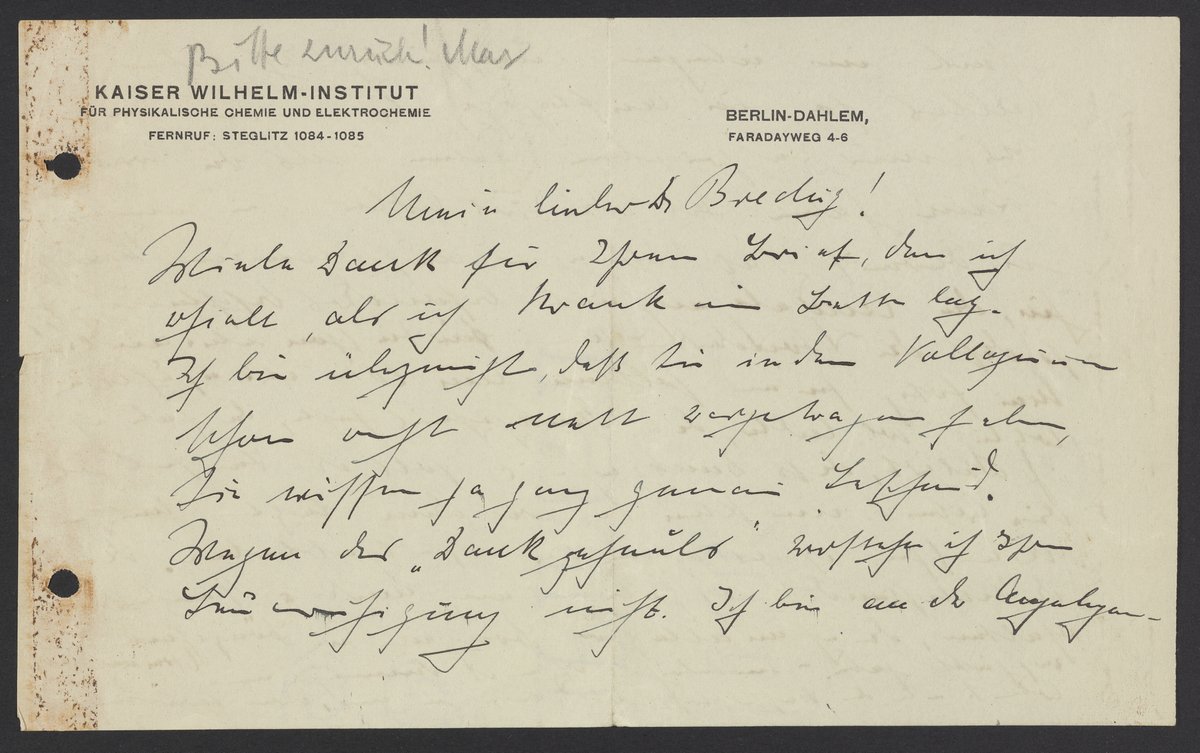 Bitte zurück! Max
KAISER WILHELM-INSTITUT
FÜR PHYSIKALISCHE CHEMIE UND ELEKTROCHEMIE
FERNRUF: STEGLITZ 1084-1085
BERLIN-DAHLEM,
FARADAYWEG 4-6
Mein lieber Dr Bredig!
Vielen Dank für Ihren Brief, den ich
erhielt, als ich krank im Bette lag.
Ich bin überzeugt, daß Sie in dem Kolloquium
schon recht nett vorgetragen haben,
Sie wissen ja ganz genau Bescheid.
Wegen des „Dankgefühls" verstehe ich Ihre
Beunruhigung nicht. Ich bin an der Angelegen-